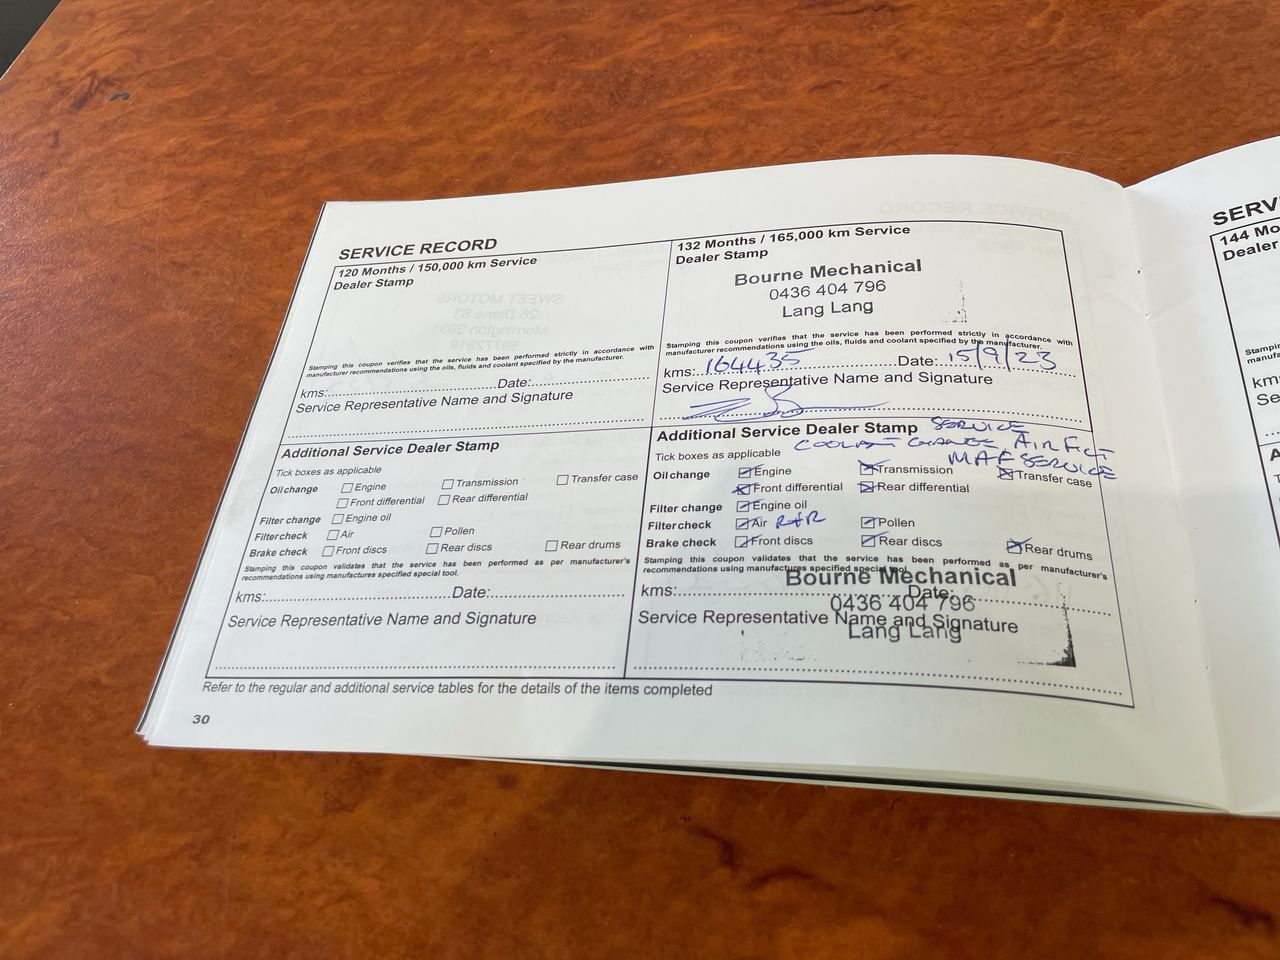 SERVICE RECORD
120 Months / 150,000 km Service
Dealer Stamp
Stamping this coupon verifies that the service has been performed strictly in accordance with
manufacturer recommendations using the oils, fluids and coolant specified by the manufacturer.
kms: Date:
Service Representative Name and Signature
Additional Service Dealer Stamp
Tick boxes as applicable
Oil change Engine Transmission Transfer case
Front differential Rear differential
Filter change Engine oil
Filter check Air Pollen
Brake check Front discs Rear discs Rear drums
Stamping this coupon validates that the service has been performed as per manufacturer's
recommendations using manufactures specified special tool.
kms: Date:
Service Representative Name and Signature
132 Months / 165,000 km Service
Dealer Stamp
Bourne Mechanical
0436 404 796
Lang Lang
Stamping this coupon verifies that the service has been performed strictly in accordance with
manufacturer recommendations using the oils, fluids and coolant specified by the manufacturer.
kms: 164435 Date: 15/9/23
Service Representative Name and Signature
Additional Service Dealer Stamp SERVICE
Tick boxes as applicable COOLANT CHANGE, AIR FILT
MAF SERVICE
Oil change Engine Transmission Transfer case
Front differential Rear differential
Filter change Engine oil
Filter check Air R+R Pollen
Brake check Front discs Rear discs Rear drums
Stamping this coupon validates that the service has been performed as per manufacturer's
recommendations using manufactures specified special tool.
Bourne Mechanical
kms: Date:
0436 404 796
Service Representative Name and Signature
Lang Lang
Refer to the regular and additional service tables for the details of the items completed
30
SERV
144 Mo
Dealer
Stampin
manufa
kms
Se
A